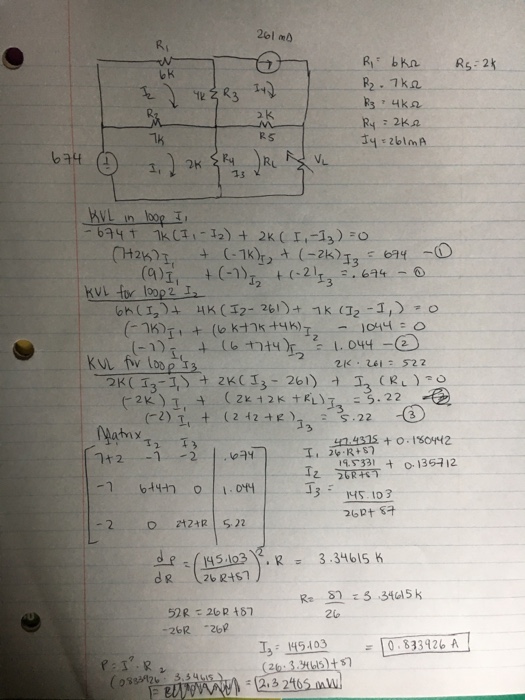 261 mA
R1
6K
R1 = 6kΩ R5 = 2k
I2 4K R3 I4
R2 . 7kΩ
R2 2K
R3 = 4kΩ
7K R5
R4 = 2KΩ
674 I1 2K R4 I3 RL VL
I4 = 261mA
KVL in loop I1
-674 + 7K(I1-I2) + 2K(I1-I3) = 0
(7+2K)I1 + (-7K)I2 + (-2K)I3 = 674 - ①
(9)I1 + (-7)I2 + (-2)I3 = .674 - ①
KVL for loop2 I2
6K(I2) + 4K(I2-261) + 7K(I2-I1) = 0
(-7K)I1 + (6K+7K+4K)I2 - 1044 = 0
(-7)I1 + (6+7+4)I2 = 1.044 - ②
KVL for loop I3 2K · 261 = 522
2K(I3-I1) + 2K(I3-261) + I3(RL) = 0
(-2K)I1 + (2K+2K+RL)I3 = 5.22
(-2)I1 + (2+2+R)I3 = 5.22 - ③
Matrix
I2 I3
7+2 -7 -2 .674
-7 6+4+7 0 1.044
-2 0 2+2+R 5.22
I1 47.4375/26·R+87 + 0.180442
I2 19.5331/26R+87 + 0.135712
I3 = 145.103/26R+87
dP/dR = (145.103/26R+87)² · R = 3.34615 K
52R = 26R + 87 R = 87/26 = 3.34615K
-26R -26R
I3 = 145.103/(26·3.34615)+87 = 0.833926 A
P = I² · R
(0.833926 · 3.34615)
= 2.32705 mW